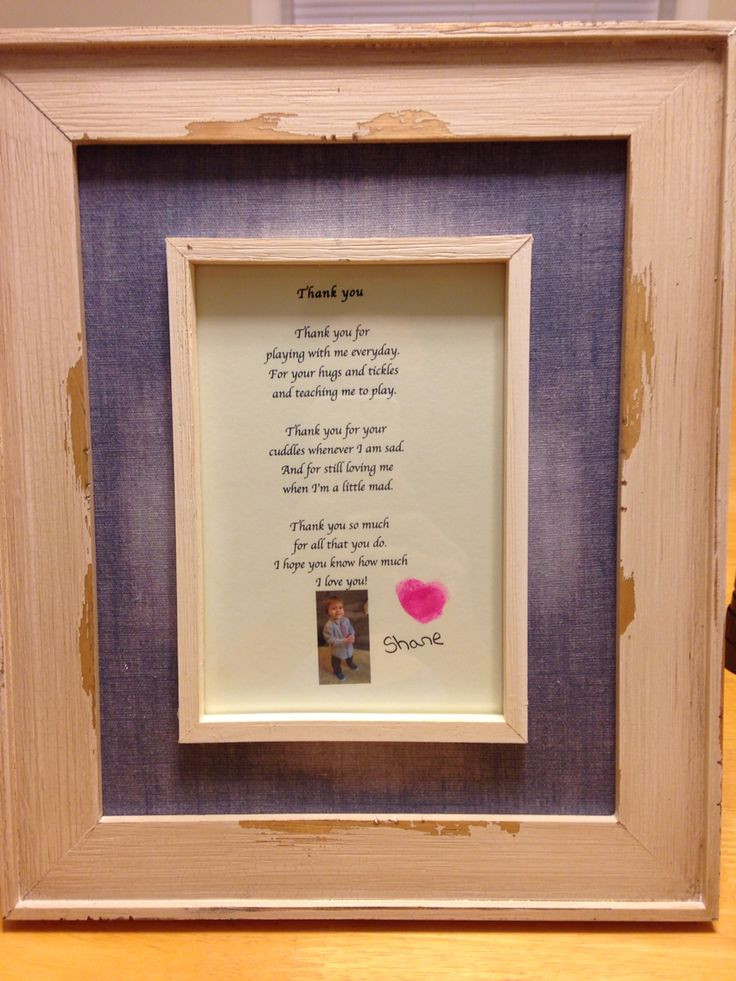 Thank you
Thank you for
playing with me everyday.
For your hugs and tickles
and teaching me to play.
Thank you for your
cuddles whenever I am sad.
And for still loving me
when I'm a little mad.
Thank you so much
for all that you do.
I hope you know how much
I love you!
Shane